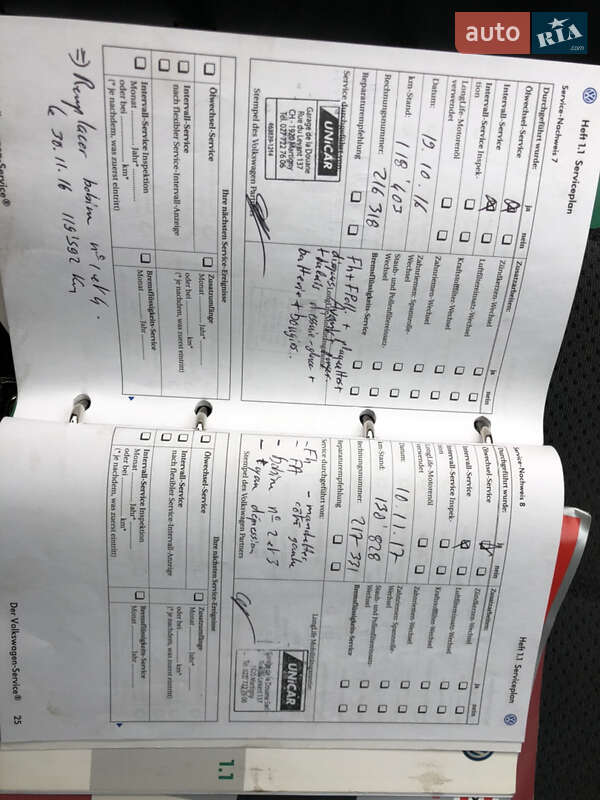 auto RIA.com
Heft 1.1 Serviceplan
Service-Nachweis 7
Durchgeführt wurde:
ja nein
Ölwechsel-Service
Intervall-Service
Intervall-Service Inspek-
tion
LongLife-Motorenöl
verwendet
Datum: 19.10.16
km-Stand: 118'403
Rechnungsnummer: 216 318
Reparaturempfehlung
Service durchgeführt
UNICAR
Garage de la Douane
Rue du Levant 137
CH - 1920 Martigny
Tél. 027 722 76 06
468839-1214
Stempel des Volkswagen Partners
Zusatzarbeiten:
ja nein
Zündkerzen-Wechsel
Luftfiltereinsatz-Wechsel
Kraftstofffilter-Wechsel
Zahnriemen-Wechsel
Zahnriemen-Spannrolle-
Wechsel
Staub- und Pollenfiltereinsatz-
Wechsel
Bremsflüssigkeits-Service
batterie + bougies.
Ihre nächsten Service-Ereignisse
Ölwechsel-Service
Intervall-Service
nach flexibler Service-Intervall-Anzeige
Intervall-Service Inspektion
Monat Jahr*
oder bei km*
(* je nachdem, was zuerst eintritt)
Zusatzumfänge
Monat Jahr*
oder bei km*
(* je nachdem, was zuerst eintritt)
Bremsflüssigkeits-Service
Monat Jahr
=> Remplacer bobine n° 1 et 4.
le 30.11.16 119'592 Km
Heft 1.1 Serviceplan
Service-Nachweis 8
Durchgeführt wurde:
ja nein
Ölwechsel-Service
Intervall-Service
Intervall-Service Inspek-
LongLife-Motorenöl
verwendet
Datum: 10.11.17
km-Stand: 130'828
Rechnungsnummer: 217 331
Reparaturempfehlung
Service durchgeführt von:
- Fh
- FA
- bobine n° 2 et 3
- tuyau dépression
Stempel des Volkswagen Partners
Zusatzarbeiten:
ja nein
Zündkerzen-Wechsel
Luftfiltereinsatz-Wechsel
Kraftstofffilter-Wechsel
Zahnriemen-Wechsel
Zahnriemen-Spannrolle-
Wechsel
Staub- und Pollenfiltereinsatz-
Wechsel
Bremsflüssigkeits-Service
UNICAR
Garage de la Douane
Rue du Levant 137
1920 Martigny
Tél. 027 722 76 06
Ihre nächsten Service-Ereignisse
Ölwechsel-Service
Intervall-Service
nach flexibler Service-Intervall-Anzeige
Intervall-Service Inspektion
Monat Jahr*
oder bei km*
(* je nachdem, was zuerst eintritt)
Zusatzumfänge
Monat Jahr*
oder bei km*
(* je nachdem, was zuerst eintritt)
Bremsflüssigkeits-Service
Monat Jahr
Der Volkswagen-Service® 25
1.1